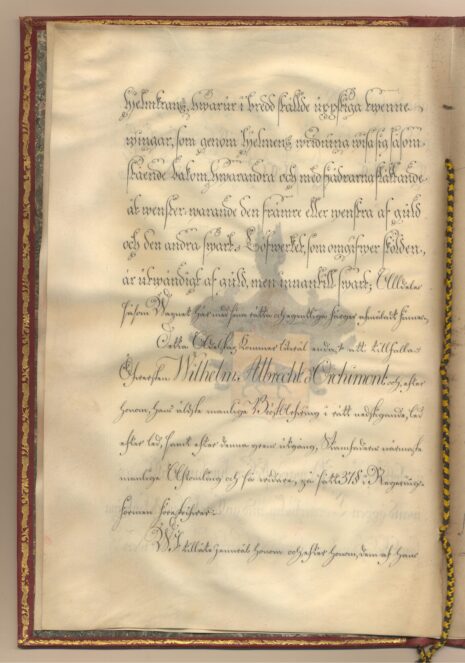 hjelmkrans, hwarur i bredd ställde uppstiga twenne
wingar, som genom hjelmens wridning wisa sig såsom
stående bakom hwarandra och med fjädrarna
åt wenster warande den främre eller wenstra af guld
och den andra swart. Löfwerket, som omgifwer skölden,
är utwändigt af guld, men innantill swart; Alldeles
såsom Wapnet här med sina rätta och egentliga färger afmåladt finnes.
Detta Adelskap kommer likwäl endast att tillfalla
Öfwersten Wilhelm Albrecht d'Orchimont och efter
honom, hans äldste manlige Bröstarfwinge i rätt nedstigande led
efter led, samt efter denna grens utgång, Stamfaderns närmaste
manlige Afkomling och så widare, på sätt 37 § i Regerings-
formen föreskrifwer.
Wi tillåte jemwäl honom och efter honom, dem af hans